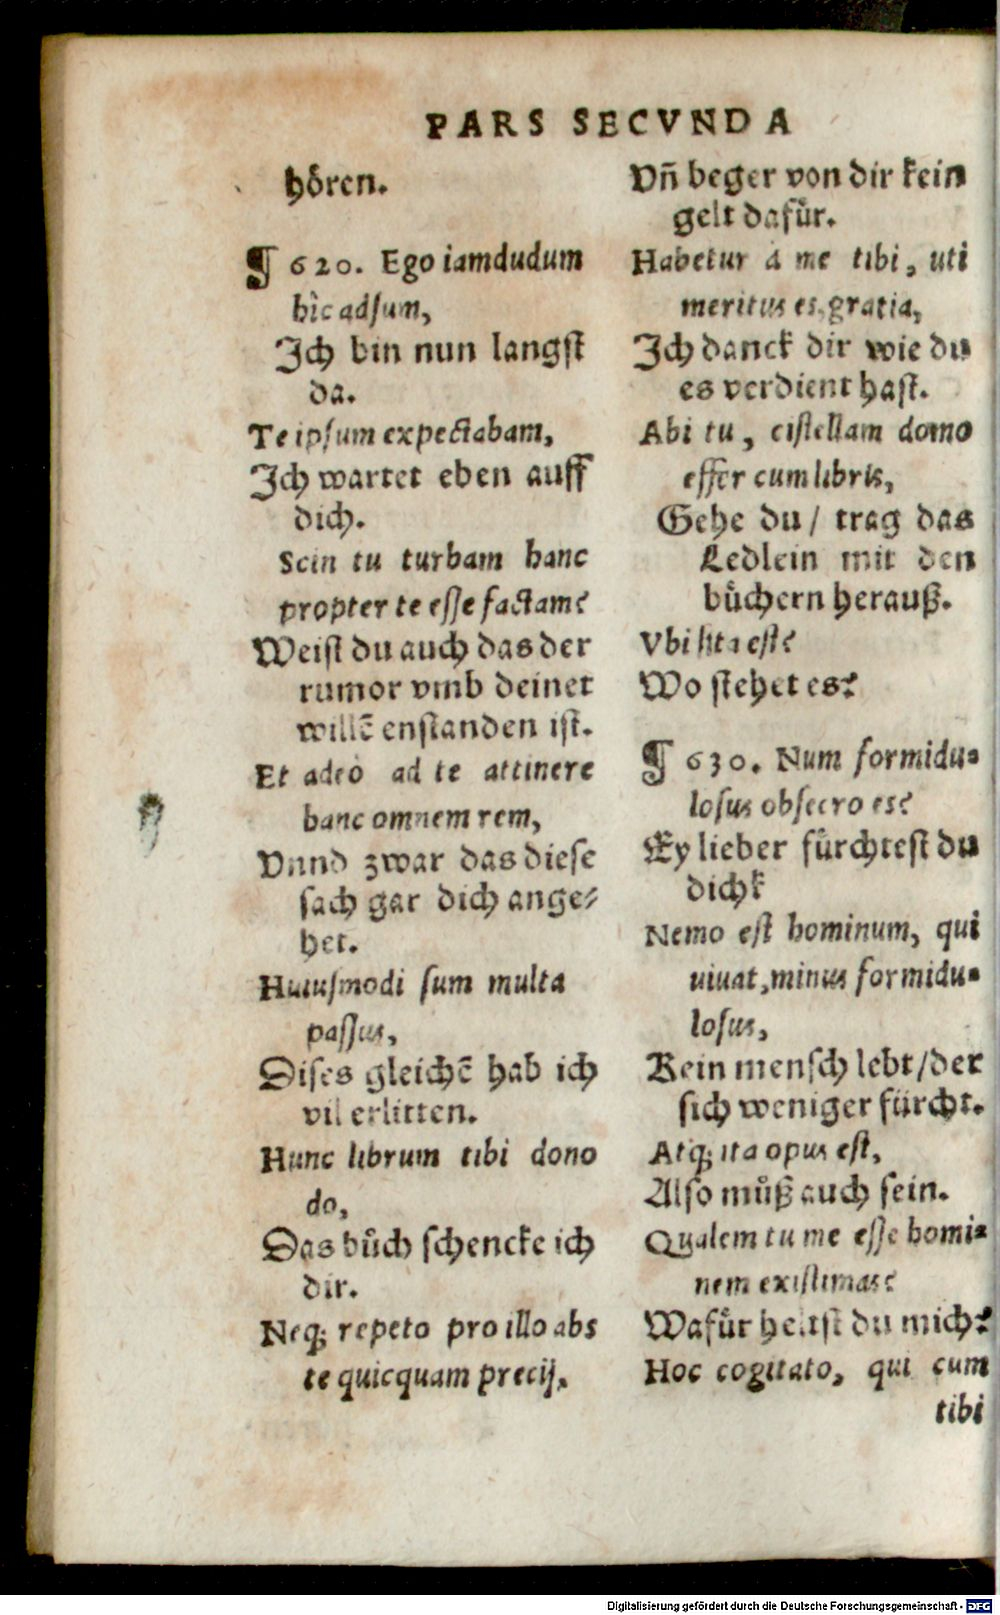 PARS SECVNDA
hoͤren.
¶ 620. Ego iamdudum
hîc adſum,
Ich bin nun langſt
da.
Te ipſum expectabam,
Ich wartet eben auff
dich.
Scin tu turbam hanc
propter te eſſe factam?
Weiſt du auch das der
rumor vmb deinet
willē enſtanden iſt.
Et adeò ad te attinere
hanc omnem rem,
Vnnd zwar das dieſe
ſach gar dich ange⸗
het.
Huiuſmodi ſum multa
paſſus,
Diſes gleichē hab ich
vil erlitten.
Hunc librum tibi dono
do,
Das buͦch ſchencke ich
dir.
Neq; repeto pro illo abs
te quicquam precij,
Vñ beger von dir kein
gelt dafuͤr.
Habetur à me tibi, uti
meritus es, gratia,
Ich danck dir wie du
es verdient haſt.
Abi tu, ciſtellam domo
effer cum libris,
Gehe du/ trag das
Ledlein mit den
buͤchern herauß.
Vbi ſita eſt?
Wo ſtehet es?
¶ 630. Num formidu-
loſus obſecro es?
Ey lieber fuͤrchteſt du
dich?
Nemo eſt hominum, qui
uiuat, minus formidu-
loſus,
Kein menſch lebt/der
ſich weniger fürcht.
Atq; ita opus eſt,
Alſo muͦß auch ſein.
Qualem tu me eſſe homi-
nem exiſtimas?
Wafuͤr heltſt du mich?
Hoc cogitato, qui cum
tibi
Digitalisierung gefördert durch die Deutsche Forschungsgemeinschaft - DFG